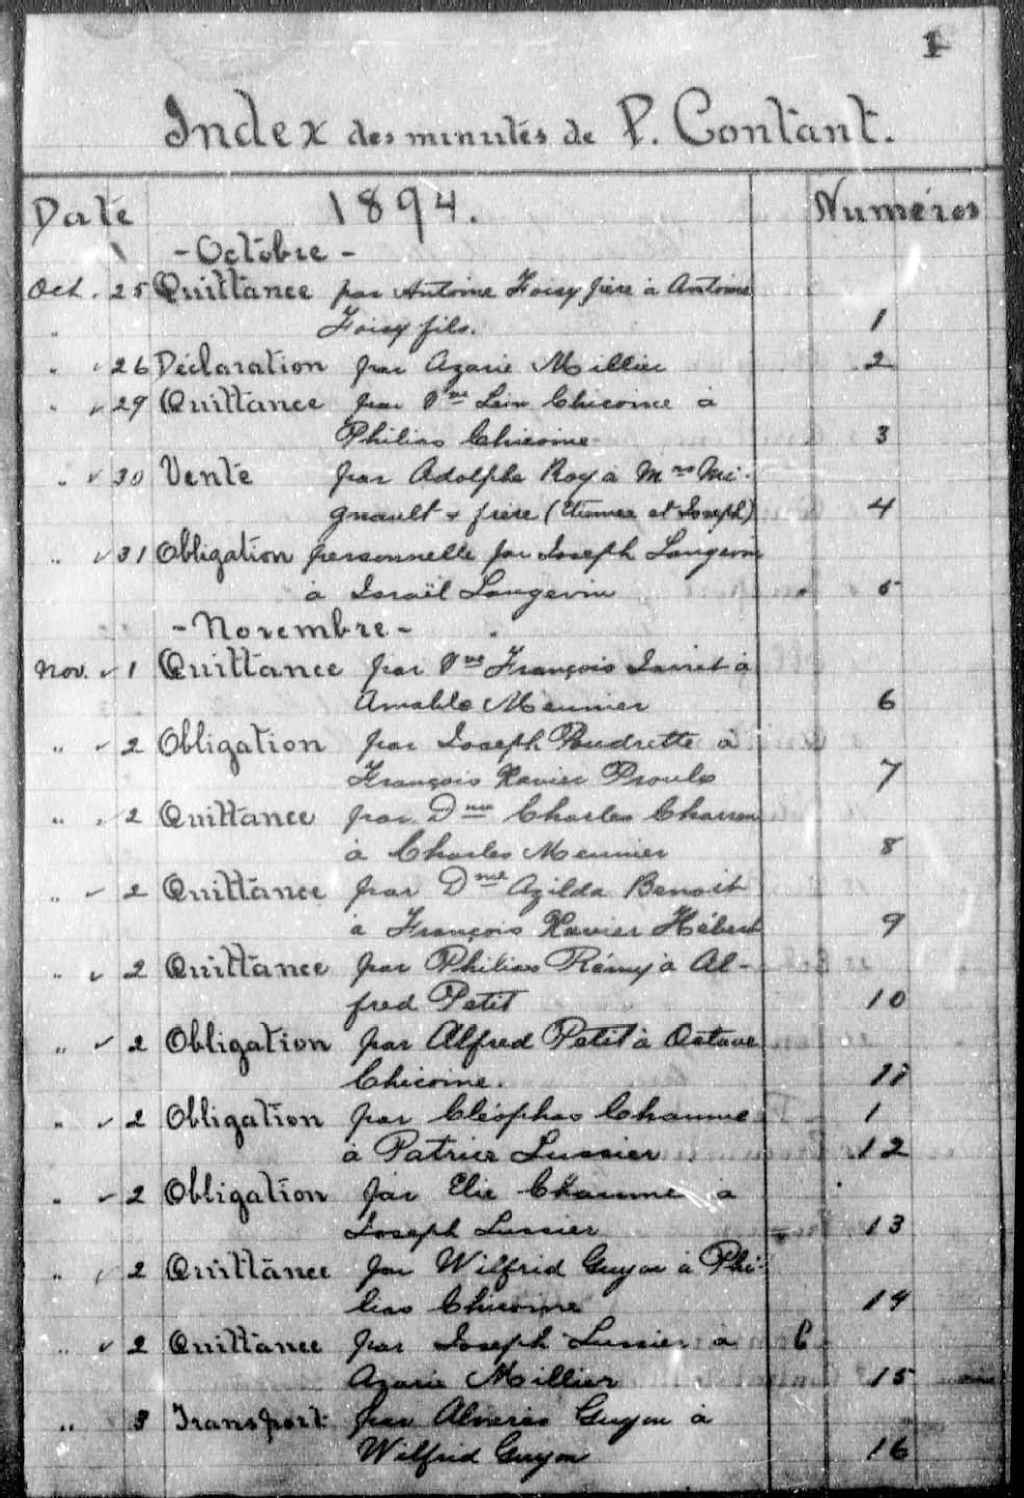 1
Index des minutes de P. Contant.
Date 1894. Numéros
- Octobre -
Oct. 25 Quittance par Antoine Foisy père à Antoine
Foisy fils. 1
" 26 Déclaration par Azarie Millier 2
" 29 Quittance par Vve Léon Chicoine à
Philias Chicoine 3
" 30 Vente par Adolphe Roy à Mrs Mi-
gnault & frère ( et Joseph) 4
" 31 Obligation personnelle par Joseph Langevin
à Israël Langevin 5
- Novembre -
Nov. 1 Quittance par Vve François à
Amable Meunier 6
" 2 Obligation par Joseph Poudrette à
François Xavier Proulx 7
" 2 Quittance par Dme Charles Charron
à Charles Meunier 8
" 2 Quittance par Dme Azilda Benoit
à François Xavier Hébert 9
" 2 Quittance par Philias Rémy à Al-
fred Petit 10
" 2 Obligation par Alfred Petit à Octave
Chicoine. 11
" 2 Obligation par Cléophas Chaume 1
à Patrice Lussier 12
" 2 Obligation par Elie Chaume à
Joseph Lussier 13
" 2 Quittance par Wilfrid Guyon à Phi-
lias Chicoine 14
" 2 Quittance par Joseph Lussier à
Azarie Millier 15
" 3 Transport par Guyon à
Wilfrid Guyon 16